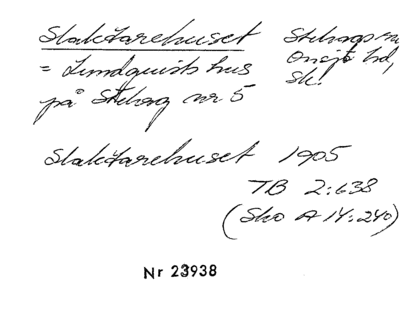 Slaktarehuset Stehags sn
= Lundquists hus Onsjö hd,
på Stehag nr 5 Sk!
Slaktarehuset 1905
TB 2:638
(Sko A 14:240)
Nr 23938